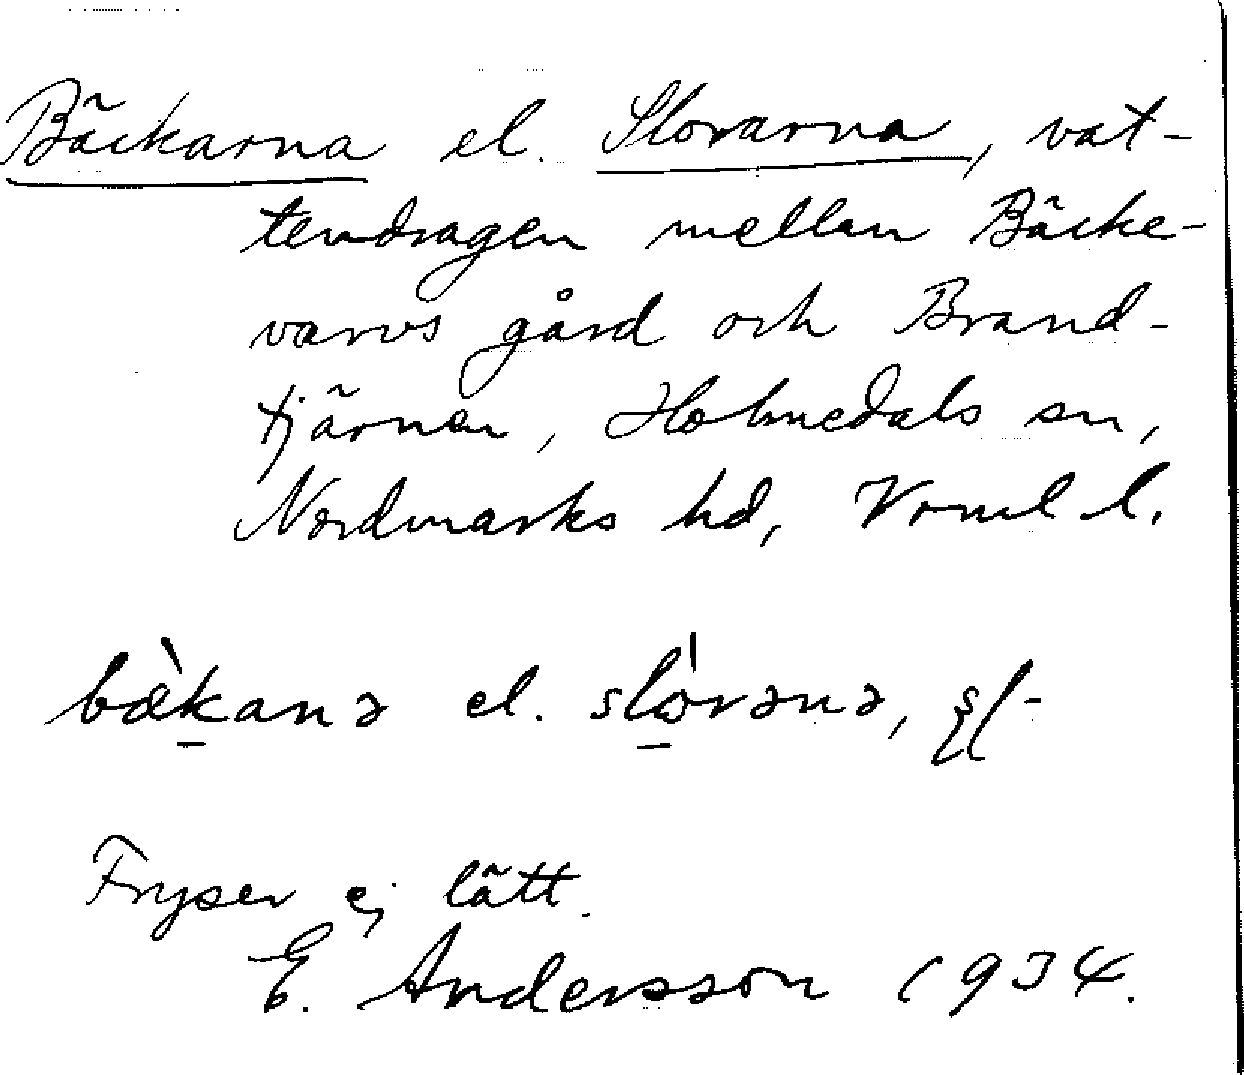 Bäckarna el. Slorarna, vat-
tendragen mellan Bäcke-
varvs gård och Brand-
tjärnen, Holmedals sn,
Nordmarks hd, Vrml l.
bæ̀kanə el. slòrənə,
Fryser ej lätt.
E. Andersson 1934.